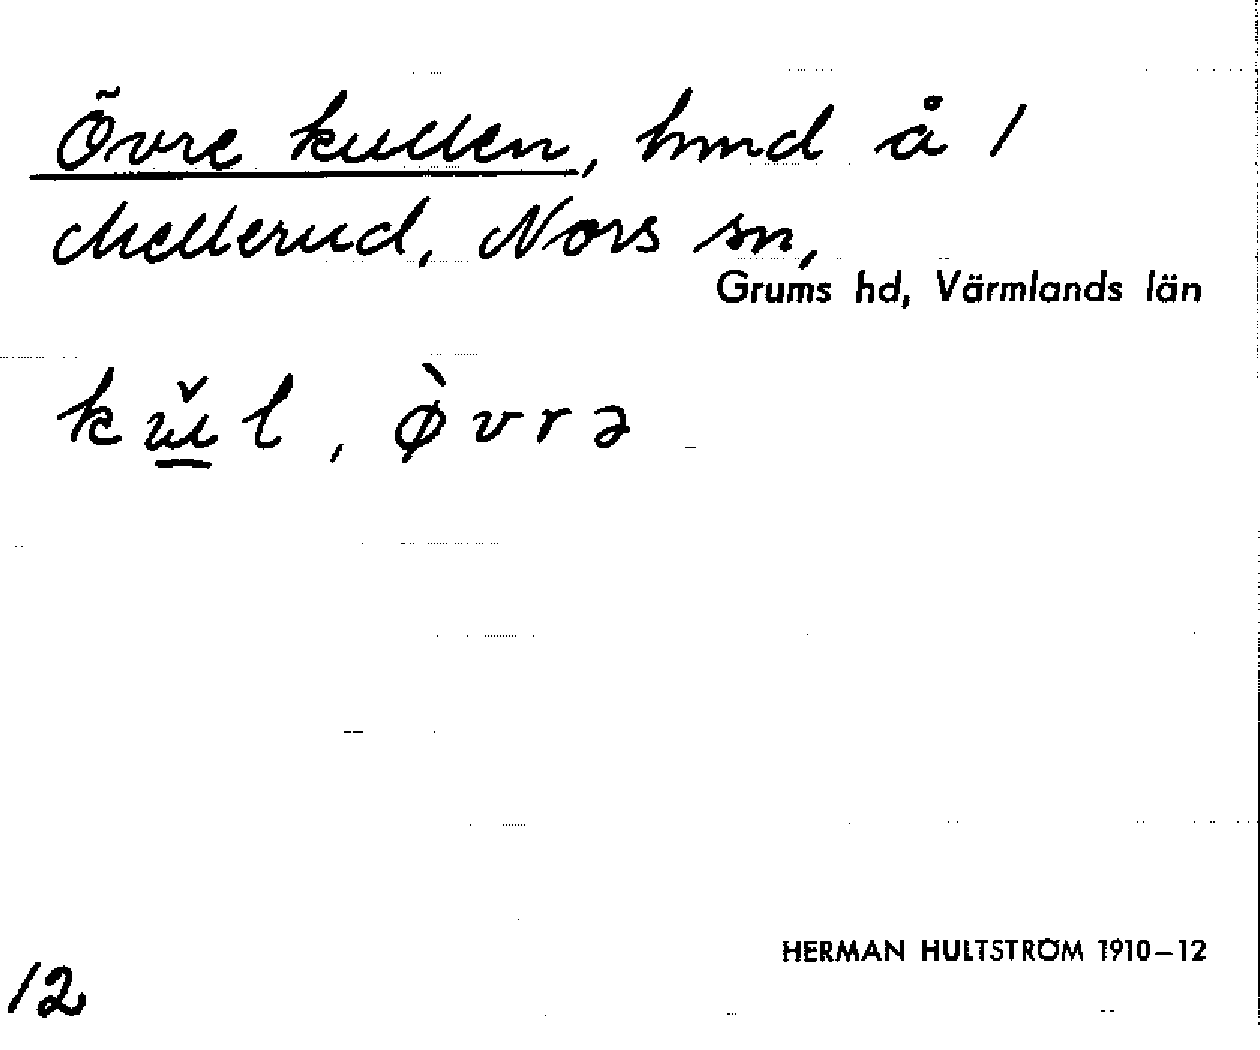 Övre kullen, hmd å 1
Mellerud, Nors sn,
Grums hd, Värmlands län
kŭ̠l, ø̀vrə
HERMAN HULTSTRÖM 1910–12
12